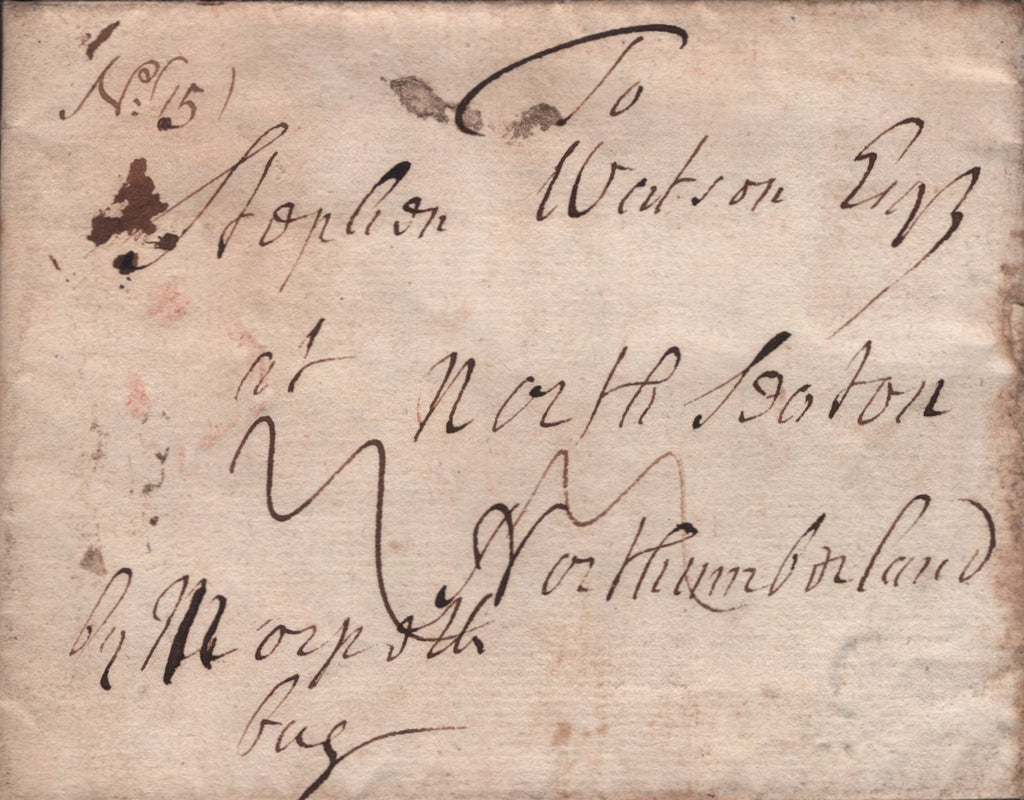 No. (15)
To
Stephen Watson Esqr
at North Seaton
Northumberland
by Morpeth
bag